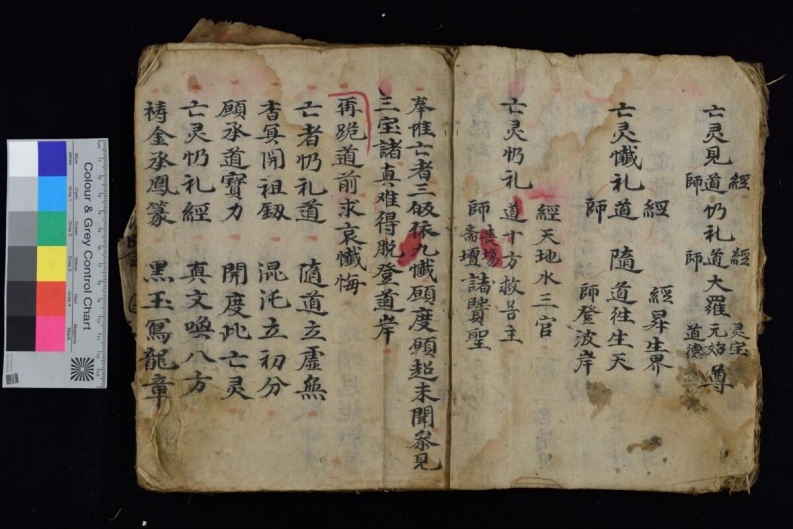 經 經 灵宝
亡灵見道 礽礼道大羅元始尊
師 師 道德
經 經昇生界
亡灵懺礼道 隨道徃生天
師 師登波岸
經天地水三官
亡灵礽礼道十方救苦主
師喪場齋壇諸賢聖
奉惟亡者三皈依九懺願度願超未聞叅見
三宝諸真难得脫登道岸
再跪道前求哀懺悔
亡者礽礼道 隨道立虛無
杳冥開祖刼 混沌立初分
願承道寶力 開度此亡灵
亡灵礽礼經 真文喚八方
禱金丞鳳篆 黑玉寫龍章
Colour & Grey Control Chart
Blue Cyan Green Yellow Red Magenta